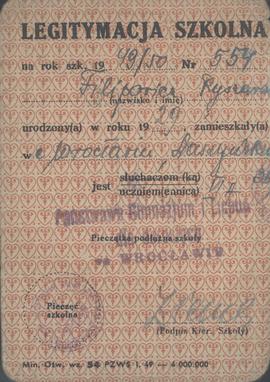 LEGITYMACJA SZKOLNA
na rok szk. 19 49/50 Nr 554
Filipowicz Ryszard
(nazwisko i imię)
urodzony(a) w roku 19 zamieszkały(a)
w
słuchaczem (ką)
jest uczniem(enicą)
Państwowe Gimnazjum i Liceum
Pieczątka podłużna szkoły
we WROCŁAWIU
Pieczęć
szkolna
(Podpis Kier. Szkoły)
Min. Ośw. wz. 54 PZWS I. 49 — 4 000.000